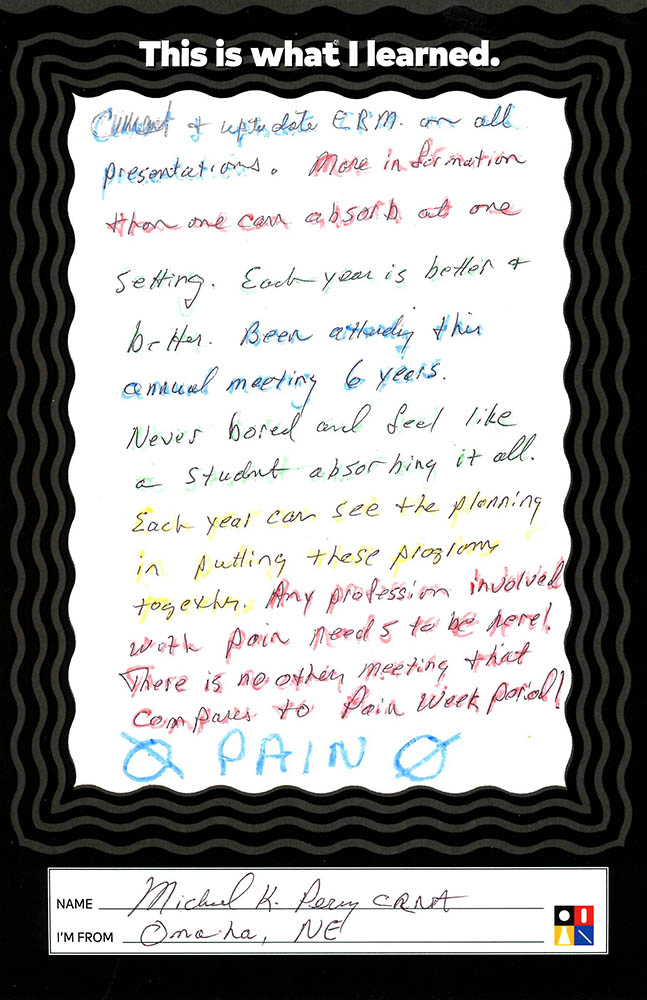 This is what I learned.
Current & uptodate E.R.M. on all
presentations. More information
than one can absorb at one
setting. Each year is better &
better. Been attending this
annual meeting 6 years.
Never bored and feel like
a student absorbing it all.
Each year can see the planning
in putting these programs
together. Any profession involved
with pain needs to be here!
There is no other meeting that
compares to Pain Week period!
PAIN
NAME Michael K. Perry CRNA
I'M FROM Omaha, NE